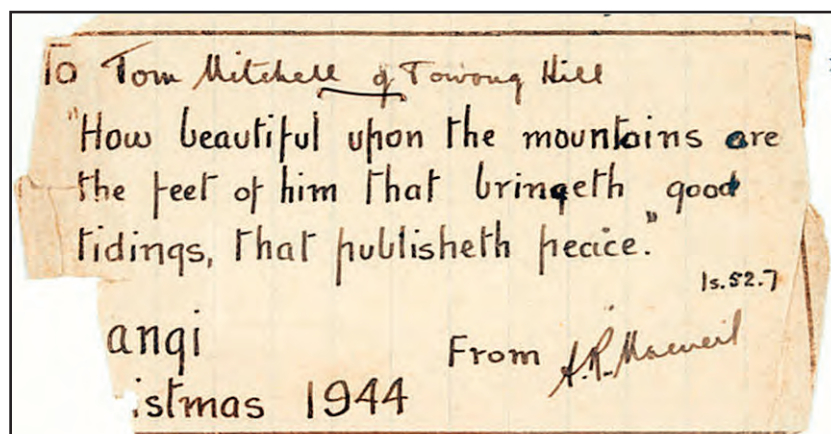 To Tom Mitchell of Towong Hill
"How beautiful upon the mountains are
the feet of him that bringeth good
tidings, that publisheth peace."
Is.52.7
angi
From A.R. Macneil
istmas 1944